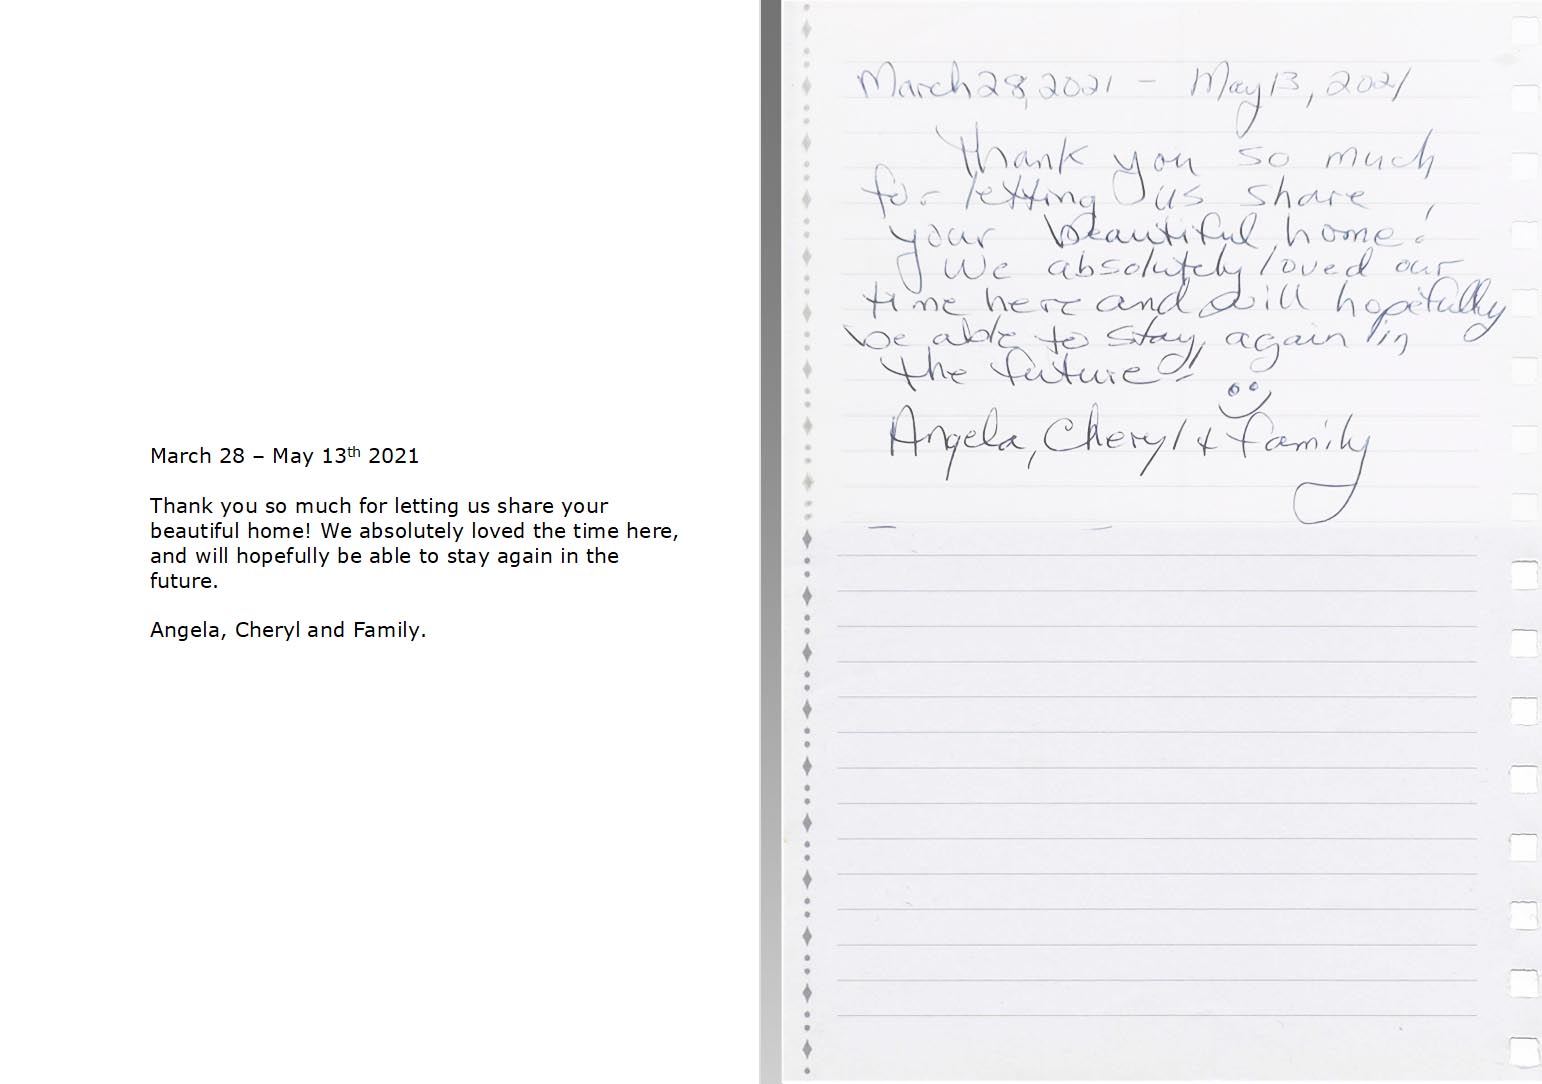 March 28 – May 13th 2021
Thank you so much for letting us share your
beautiful home! We absolutely loved the time here,
and will hopefully be able to stay again in the
future.
Angela, Cheryl and Family.
March 28, 2021 - May 13, 2021
Thank you so much
for letting us share
your beautiful home!
We absolutely loved our
time here and will hopefully
be able to stay again in
the future!
Angela, Cheryl & family